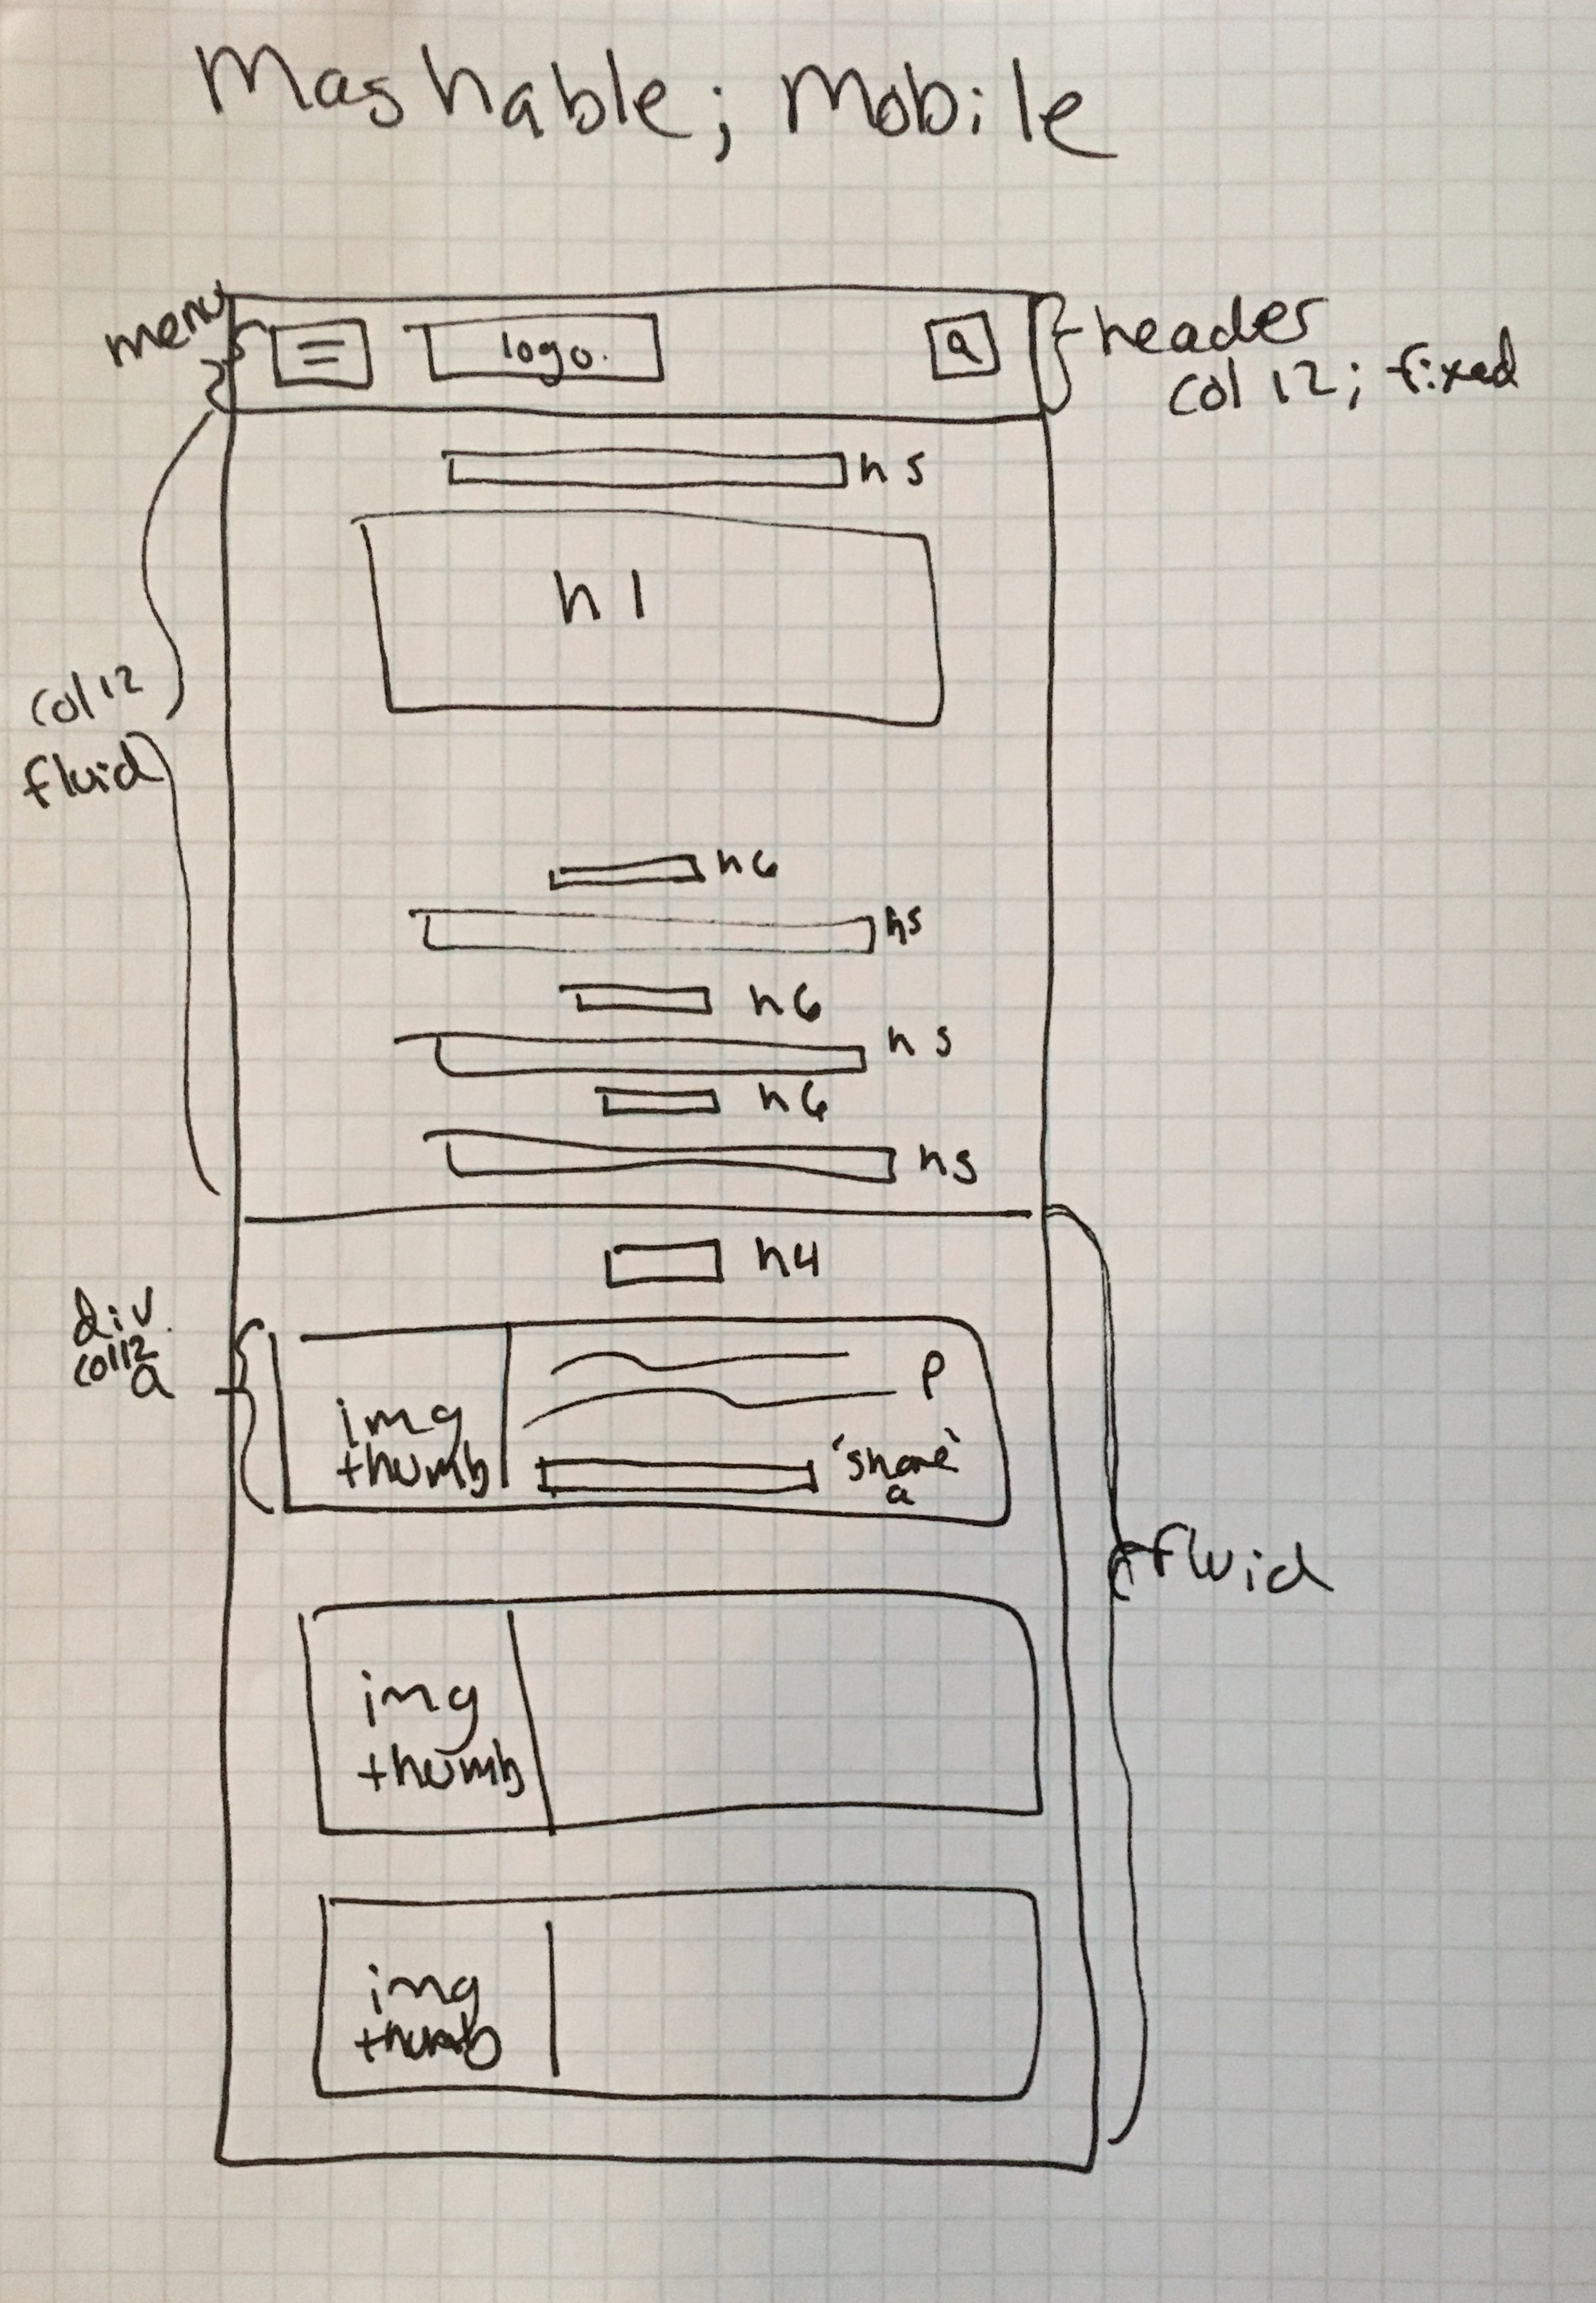 Mashable; Mobile
menu
logo.
a
header
col 12; fixed
h5
h1
col 12
fluid
h6
h5
h6
h5
h6
h5
h4
div.
col12
a
p
img
thumb
'share'
a
fluid
img
thumb
img
thumb